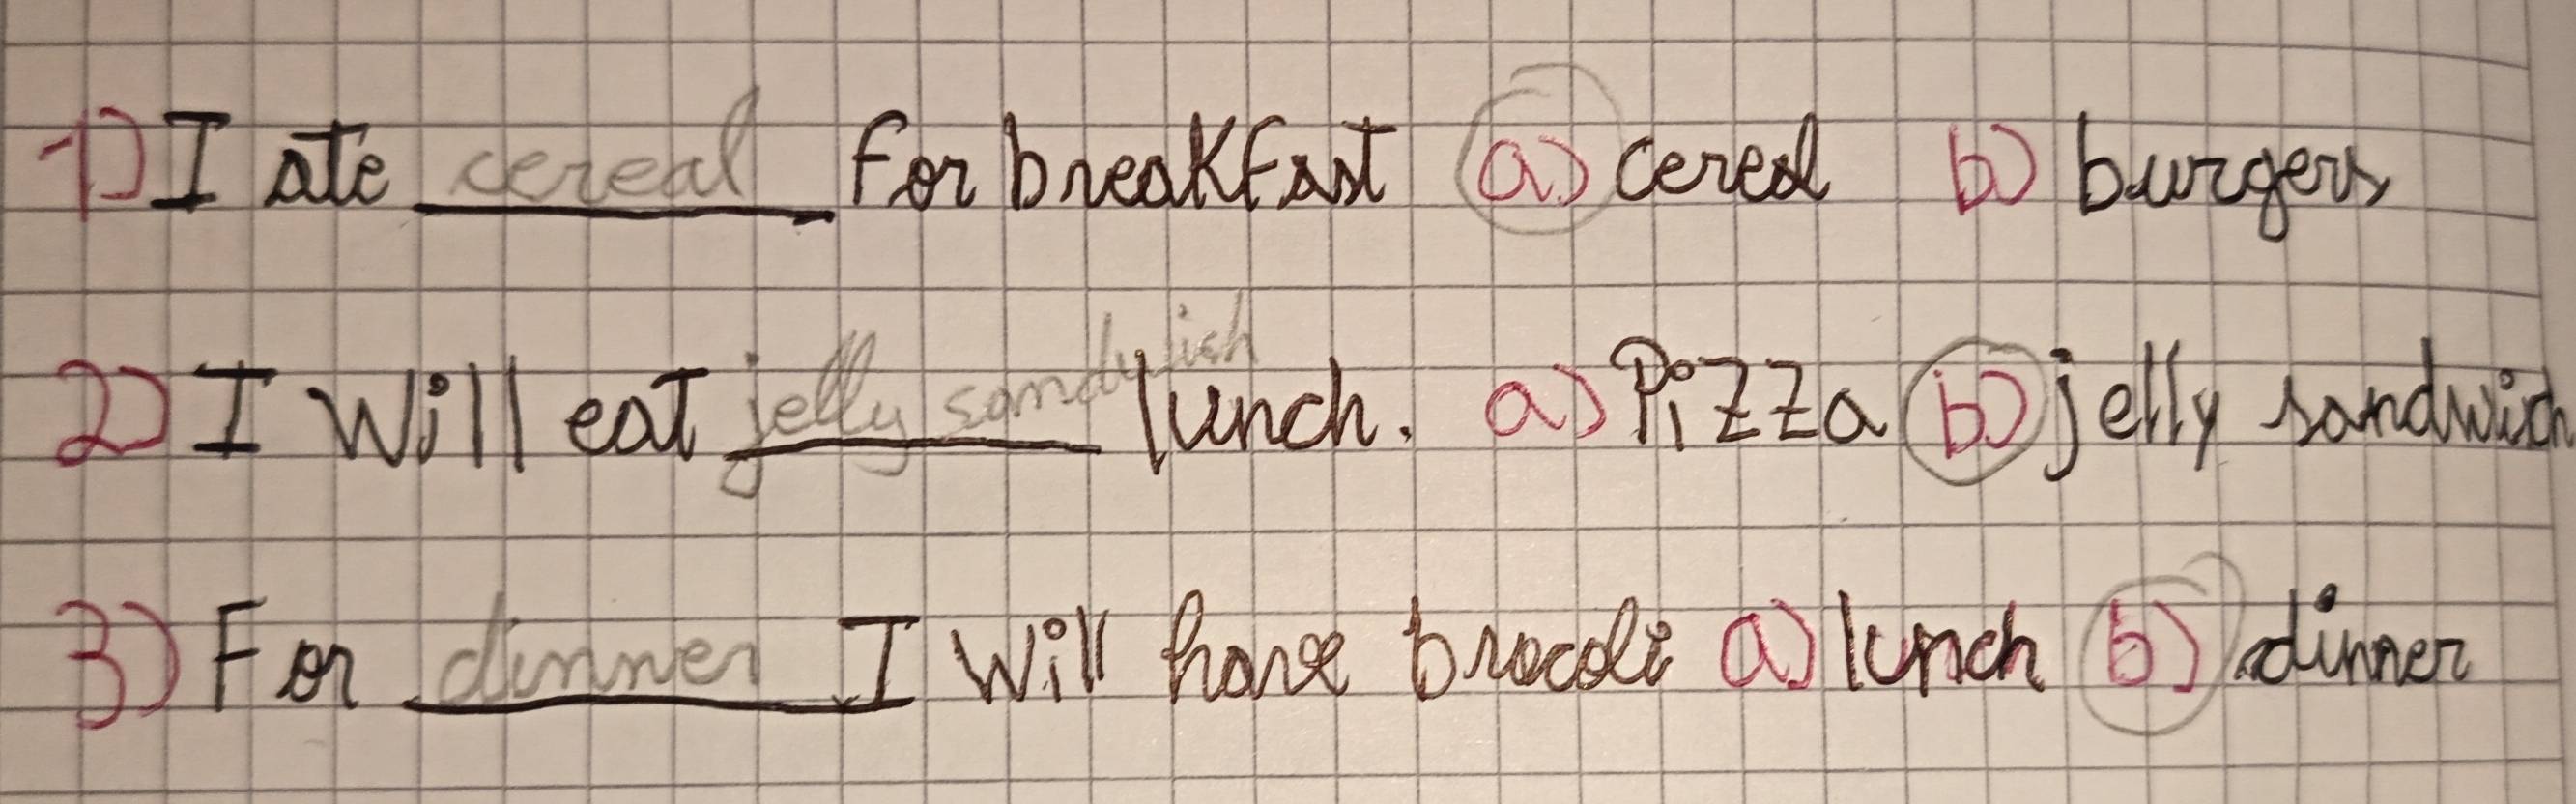 1) I ate cereal for breakfast a) cereal b) burgers
2) I will eat jelly sandwich lunch. a) Pizza b) jelly sandwich
3) For dinner I will have brocoli a) lunch b) dinner